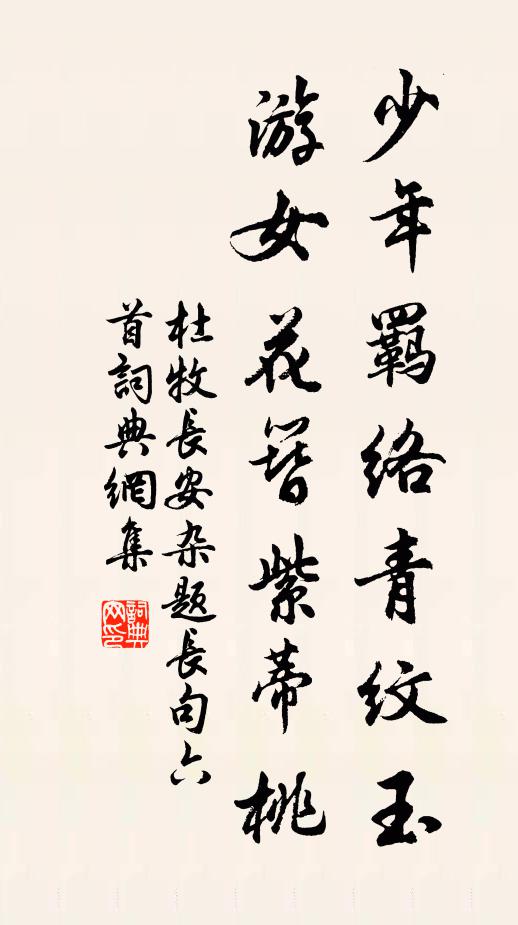 少年羈络青纹玉
游女花簪紫蒂桃
杜牧長安杂题長句六
首詞典網集
詞典
网印